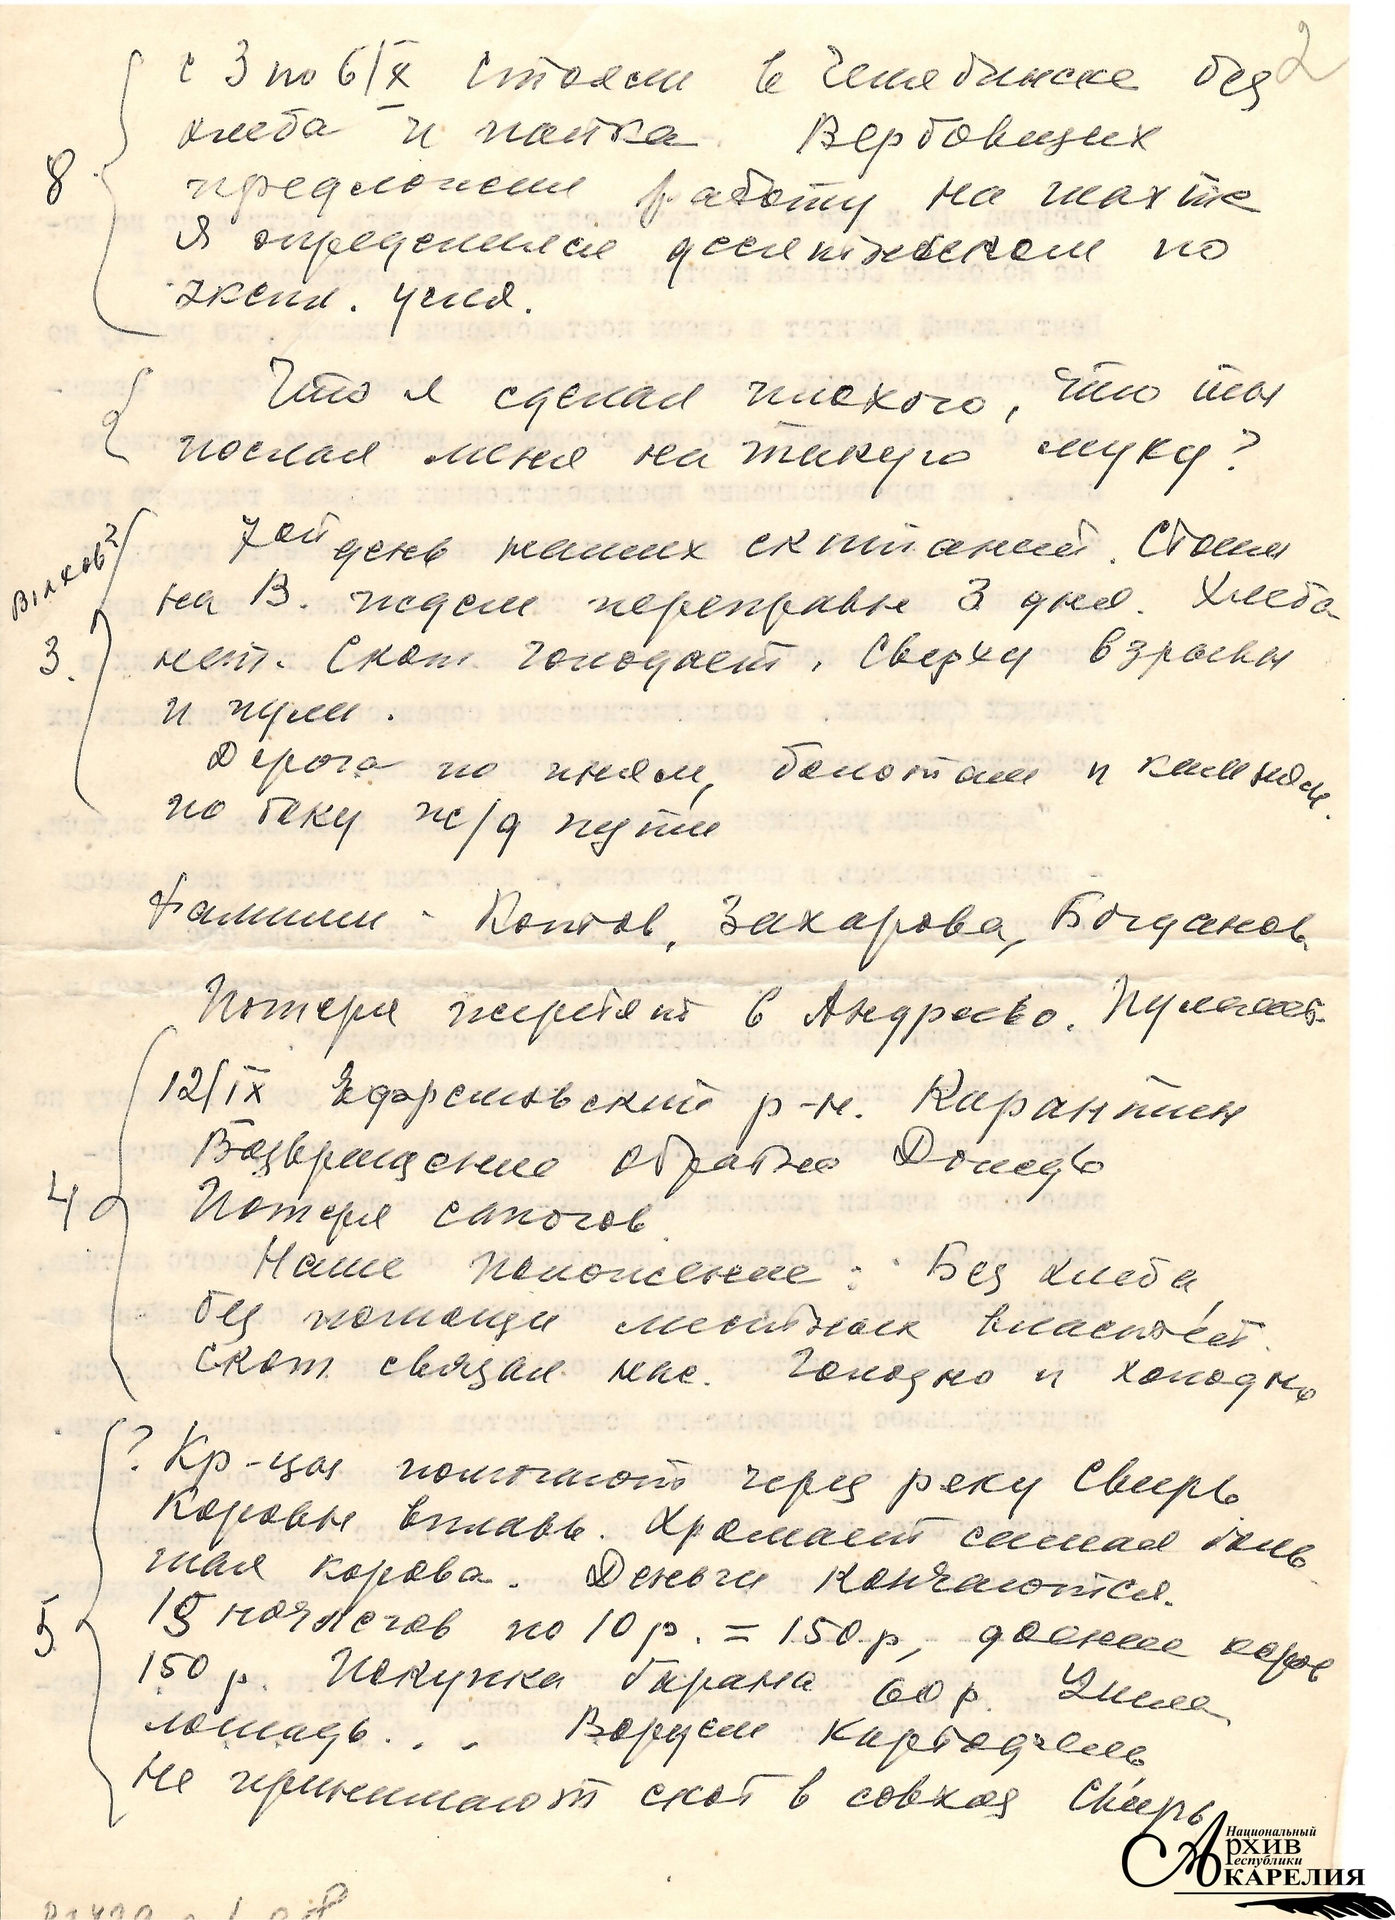 2
с 3 по 6/X стояли в Челябинске без
8
хлеба и пайка. Вербовщик
предложил работу на шахте
Я определился десятником по
экспл. угля.
Что я сделал плохого, что ты
послал меня на такую муку?
Вълхов?
7ой день наших скитаний. Стоим
на В. ждем переправы 3 дня. Хлеба
3.
нет. Скот голодает. Сверху взрывы
и пули.
Дорога по пням, болотам и камням.
по боку ж/д пути
Фамилии - Коптов, Захарова, Богданов
Потеря жеребят в Андреево.
12/IX Ефремовский р-н. Карантин
Возвращение обратно
4
Потеря сапогов.
Наше положение: Без хлеба,
без помощи местных властей.
Скот связал нас. Голодно и холодно
? Кр-цы помогают через реку Свирь
Коровы вплавь. Хромает самая боль-
шая корова. Деньги кончаются.
15 ночлегов по 10 р. = 150 р, доение коров
5
150 р. Покупка барана 60 р.
лошадь... Воруем картофель
Не принимают скот в совхоз Свирь
Национальный
Архив
Республики
Карелия